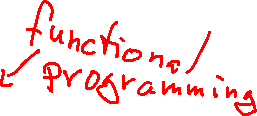 functional
programming